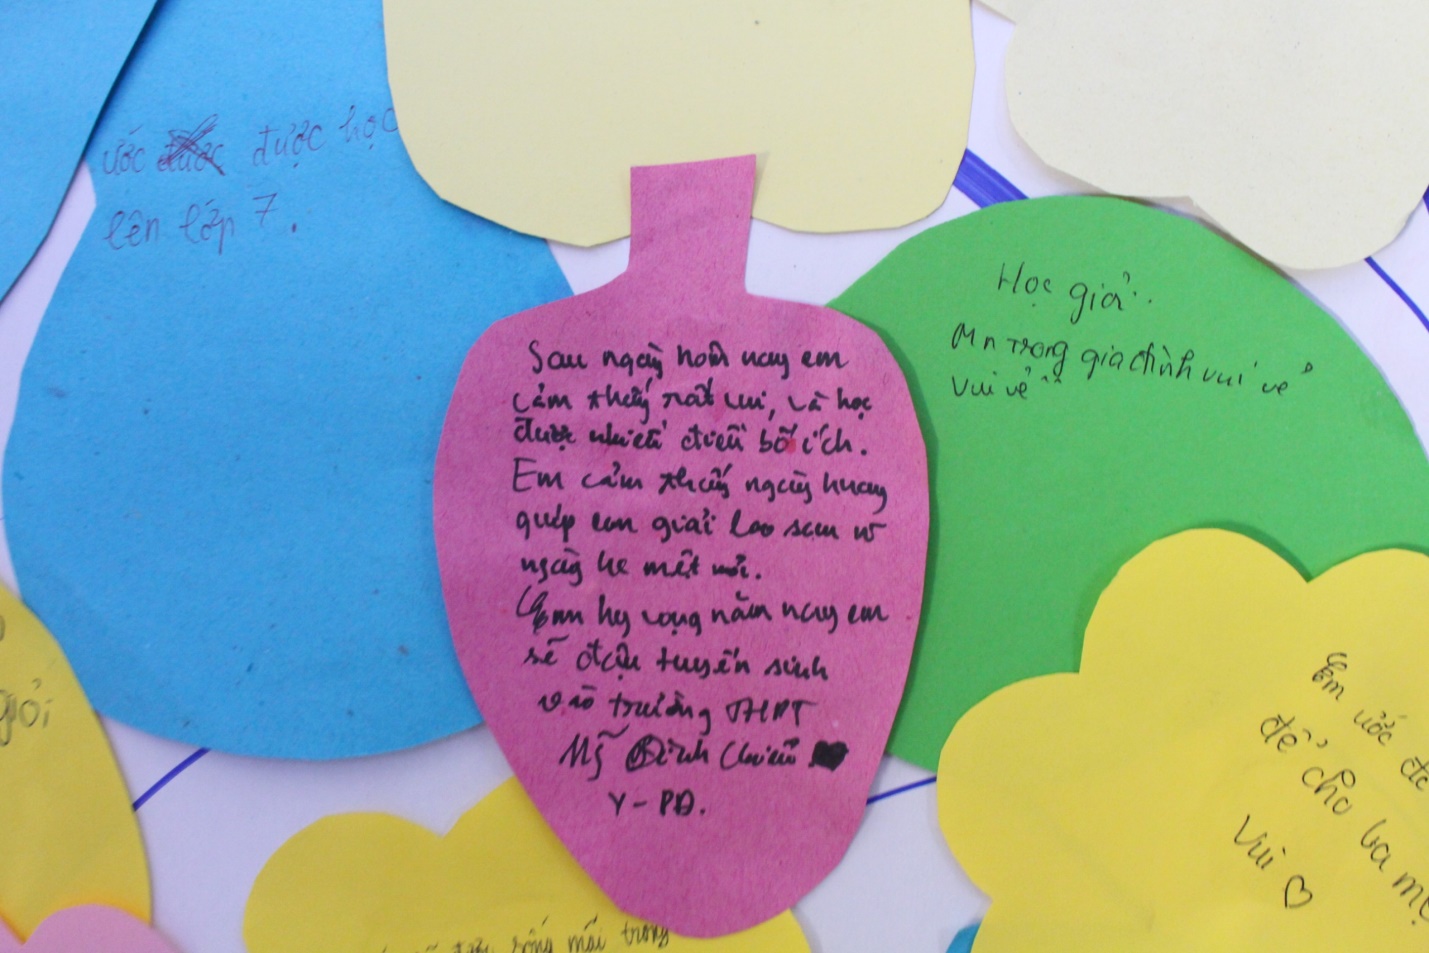 ước được được học
lên lớp 7.
Sau ngày hôm nay em
cảm thấy rất vui, và học
được nhiều điều bổ ích.
Em cảm thấy ngày hnay
giúp em giải lao sau
ngày hè mệt mỏi.
hy vọng năm nay em
sẽ đậu tuyển sinh
vào trường THPT
Ng Đình Chiểu
Y-PD.
Học giỏi..
Mn trong gia đình vui vẻ
vui vẻ
giỏi
Em ước
để cho ba mẹ
Vui ♡
sống mãi trong